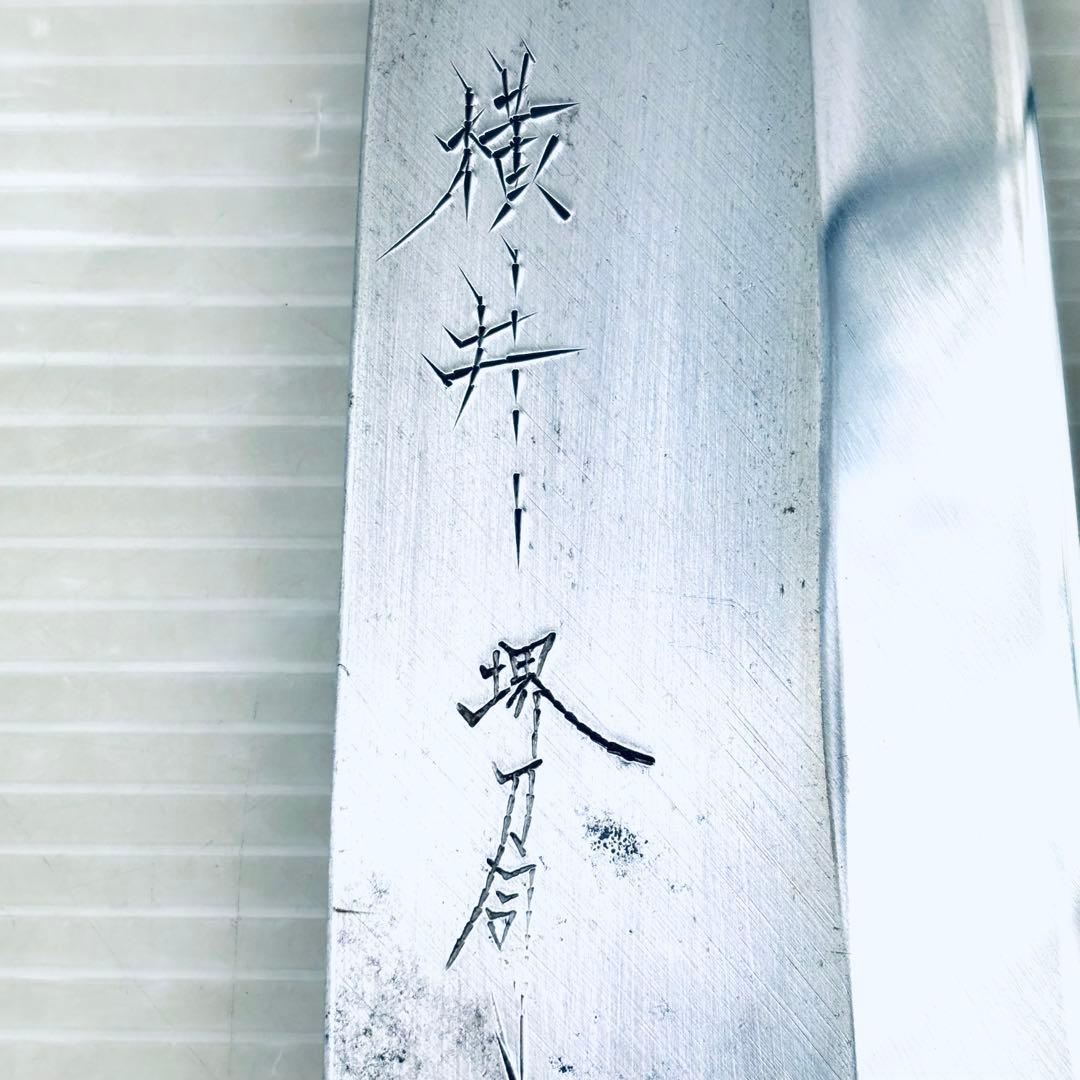 横井 堺刀司